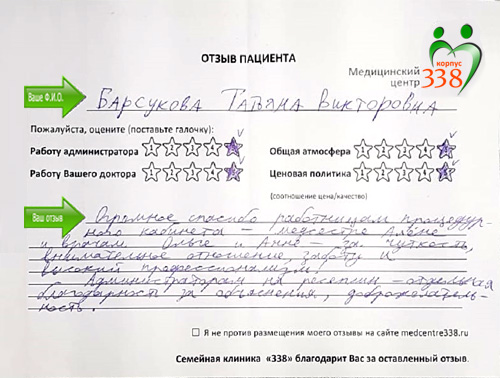 ОТЗЫВ ПАЦИЕНТА
Медицинский
центр
корпус
338
Ваше Ф.И.О.
Барсукова Татьяна Викторовна
Пожалуйста, оцените (поставьте галочку):
Работу администратора 1 2 3 4 5
Общая атмосфера 1 2 3 4 5
Работу Вашего доктора 1 2 3 4 5
Ценовая политика 1 2 3 4 5
(соотношение цена/качество)
Ваш отзыв
Огромное спасибо работницам процедур-
ного кабинета – медсестре Алёне
и врачам Ольге и Анне – за чуткость,
внимательное отношение, заботу и
высокий профессионализм!
Администраторам на ресепшн – отдельная
благодарность за объяснения, доброжелатель-
ность.
Я не против размещения моего отзывы на сайте medcentre338.ru
Семейная клиника «338» благодарит Вас за оставленный отзыв.